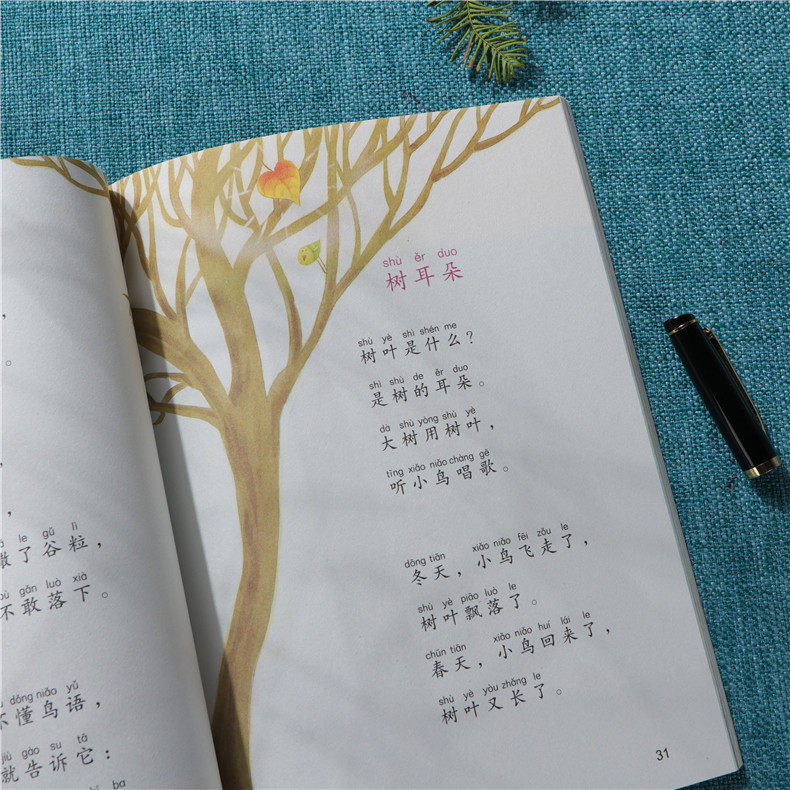 ，
。
，
，
le gǔ lì
了谷粒，
gǎn luò xià
不敢落下。
dǒng niǎo yǔ
懂鸟语，
jiù gào su tā
就告诉它：
ba
shù ěr duo
树耳朵
shù yè shì shén me
树叶是什么？
shì shù de ěr duo
是树的耳朵。
dà shù yòng shù yè
大树用树叶，
tīng xiǎo niǎo chàng gē
听小鸟唱歌。
dōng tiān xiǎo niǎo fēi zǒu le
冬天，小鸟飞走了，
shù yè piāo luò le
树叶飘落了。
chūn tiān xiǎo niǎo huí lái le
春天，小鸟回来了，
shù yè yòu zhǎng le
树叶又长了。
31